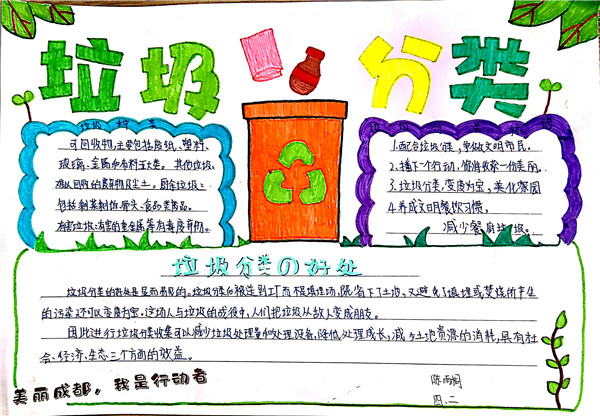 垃圾分类
垃圾种类
可回收物主要包括废纸、塑料、
玻璃、金属和布料五大类。其他垃圾:
难以回收的废弃物及尘土。厨余垃圾:
包括剩菜剩饭骨头、食品类废品。
有害垃圾:有害的重金属等有毒废弃物。
1.配合垃圾分类,争做文明市民。
2.播下一个行动,你将收获一份美丽。
3.垃圾分类,变废为宝,美化家园
4.养成文明餐饮习惯,
减少餐厨垃圾。
垃圾分类の好处
垃圾分类的好处是显而易见的。垃圾分类后被送到工厂而不是填埋场,既省下了土地,又避免了填埋或焚烧所产生
的污染,还可以变废为宝。这场人与垃圾的战役中,人们把垃圾从敌人变成朋友。
因此进行垃圾分类收集可以减少垃圾处理量和处理设备,降低处理成长,减少土地资源的消耗,具有社
会、经济、生态三个方面的效益。
美丽成都,我是行动者
陈雨
四、二